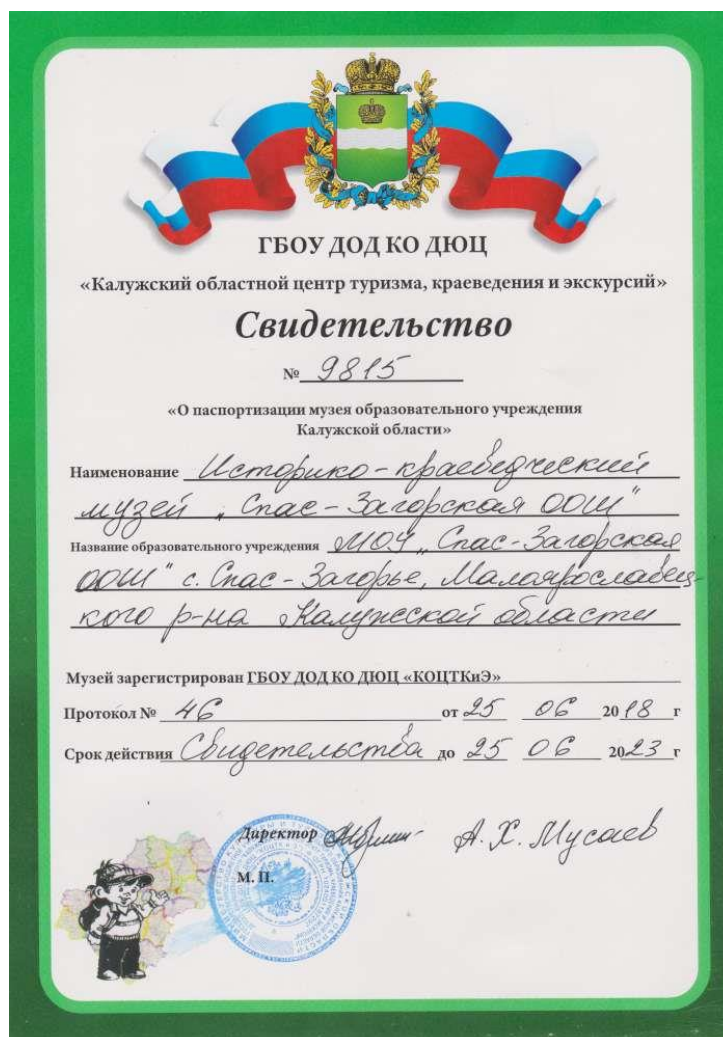 ГБОУ ДОД КО ДЮЦ
«Калужский областной центр туризма, краеведения и экскурсий»
Свидетельство
№ 9815
«О паспортизации музея образовательного учреждения
Калужской области»
Наименование Историко-краеведческий
музей „Спас-Загорская ООШ"
Название образовательного учреждения МОУ „Спас-Загорская
ООШ" с. Спас-Загорье, Малоярославец-
кого р-на Калужской области
Музей зарегистрирован ГБОУ ДОД КО ДЮЦ «КОЦТКиЭ»
Протокол № 46 от 25 06 2018 г
Срок действия Свидетельства до 25 06 2023 г
Директор А. Х. Мусаев
М. П.